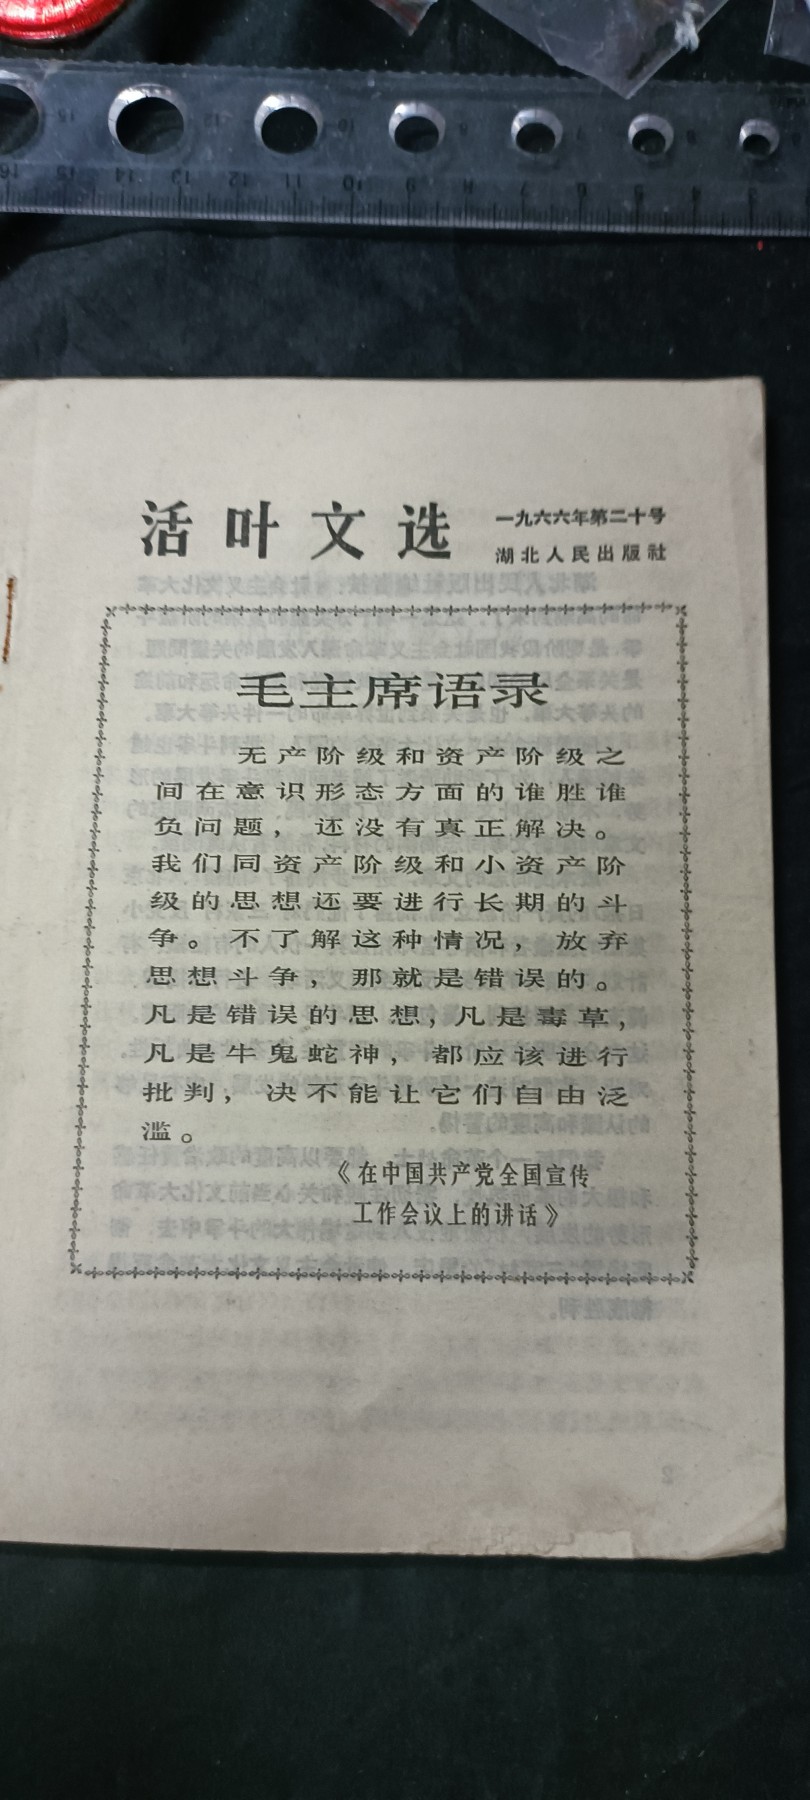 活叶文选
一九六六年第二十号
湖北人民出版社
毛主席语录
无产阶级和资产阶级之
间在意识形态方面的谁胜谁
负问题，还没有真正解决。
我们同资产阶级和小资产阶
级的思想还要进行长期的斗
争。不了解这种情况，放弃
思想斗争，那就是错误的。
凡是错误的思想，凡是毒草，
凡是牛鬼蛇神，都应该进行
批判，决不能让它们自由泛
滥。
《在中国共产党全国宣传
工作会议上的讲话》